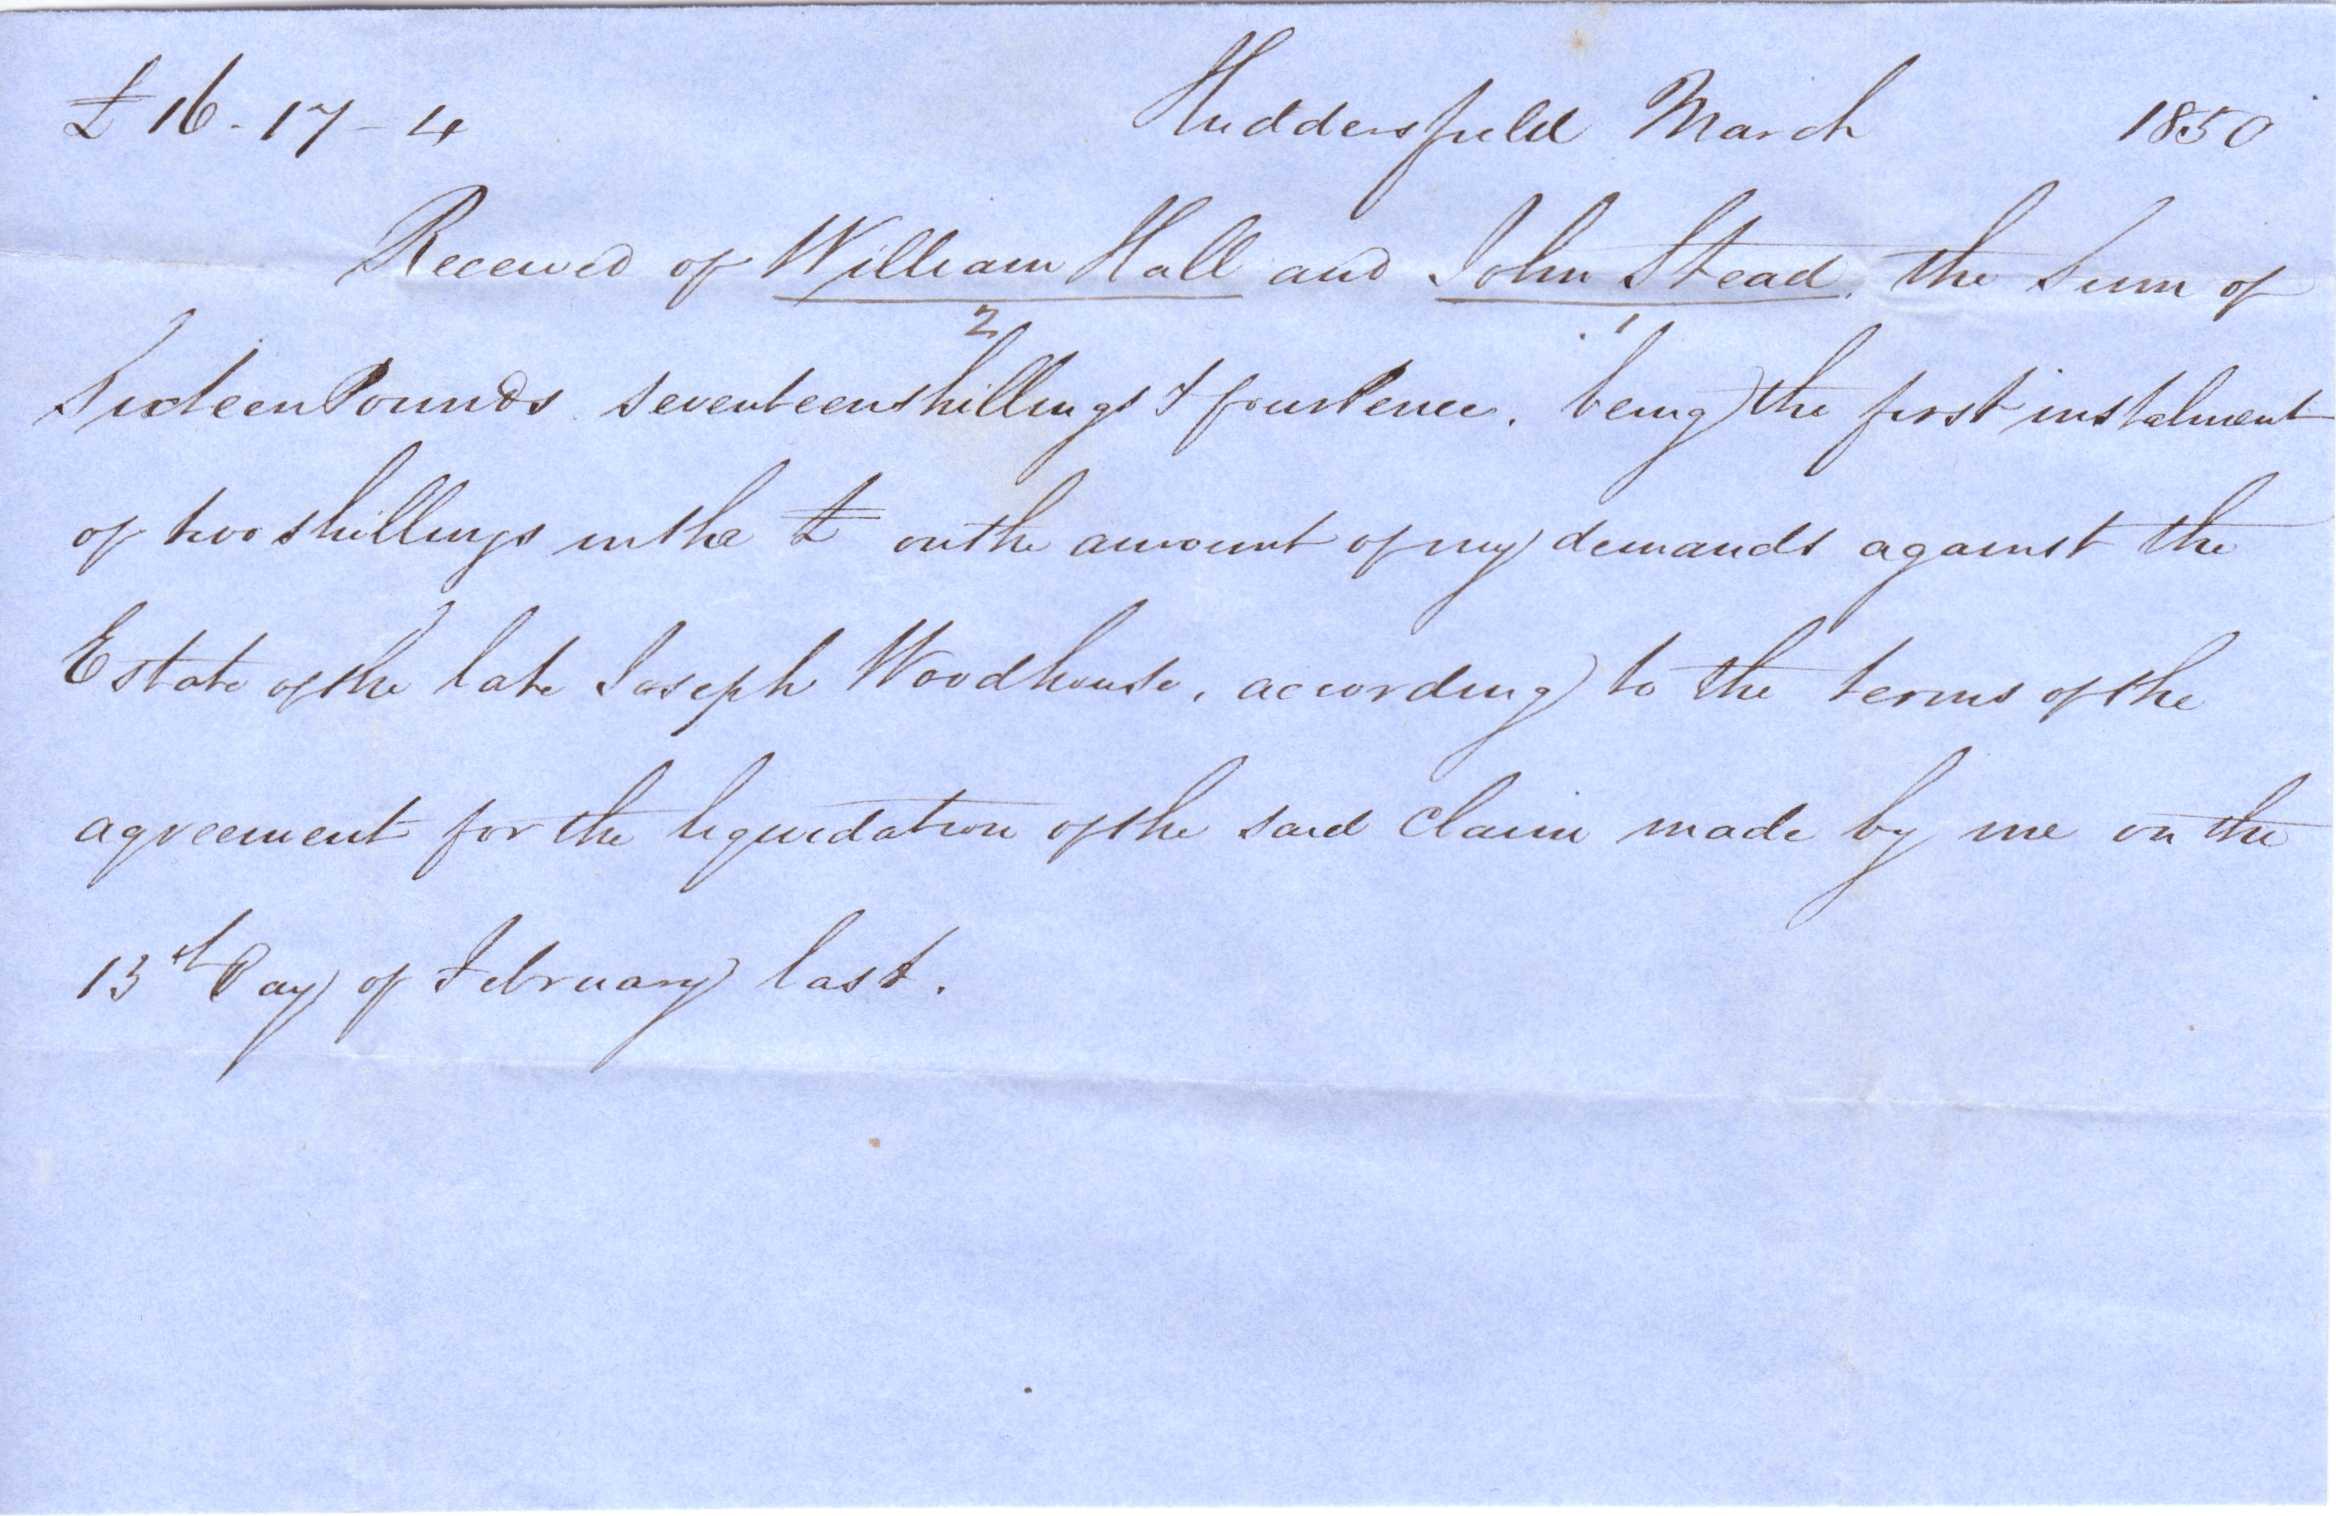 £16-17-4 Huddersfield March 1850
Received of William Hall and John Stead. the Sum of
2 1
Sixteen Pounds seventeen shillings & four Pence. being the first instalment
of two shillings in the £ on the amount of my demands against the
Estate of the late Joseph Woodhouse, according to the terms of the
agreement for the liquidation of the said claim made by me on the
13th Day of February last.